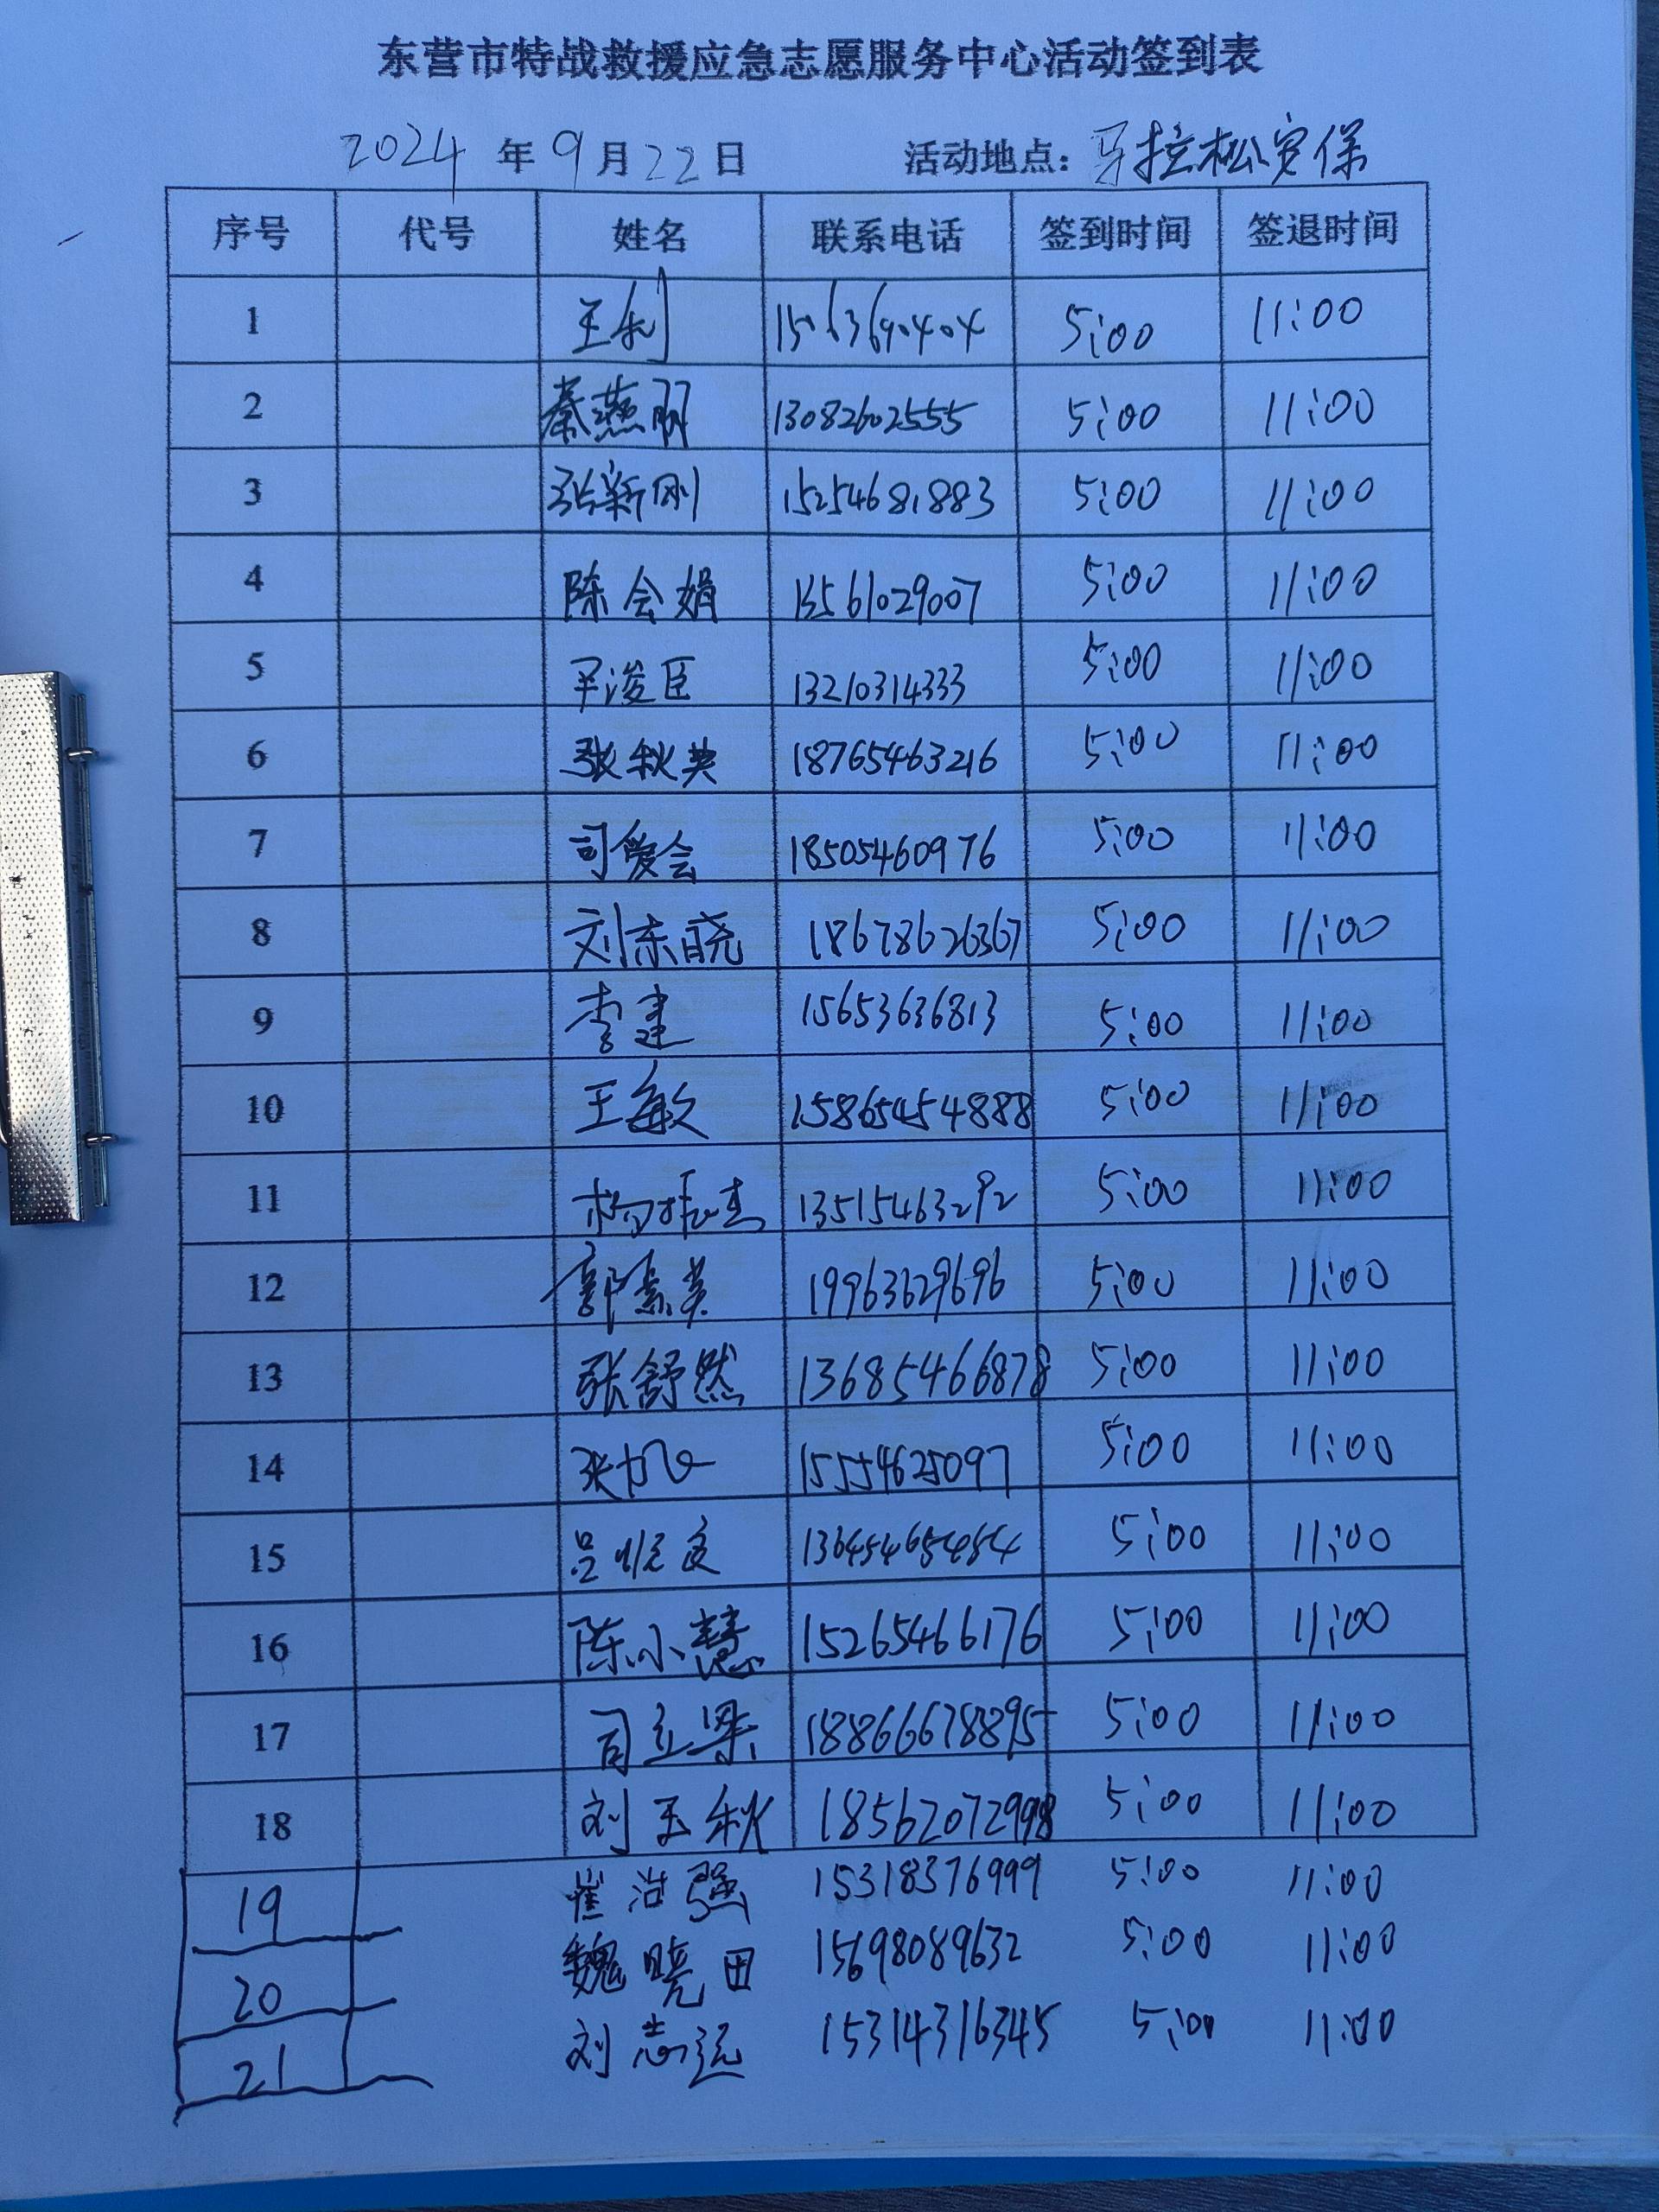 东营市特战救援应急志愿服务中心活动签到表
2024 年 9 月 22 日 活动地点：马拉松安保
序号 代号 姓名 联系电话 签到时间 签退时间
1 王利 15063690404 5:00 11:00
2 秦燕丽 13082602555 5:00 11:00
3 张新刚 15254681883 5:00 11:00
4 陈会娟 13561029007 5:00 11:00
5 平浚臣 13210314333 5:00 11:00
6 张秋英 18765463216 5:00 11:00
7 司爱会 18505460976 5:00 11:00
8 刘东晓 18678626367 5:00 11:00
9 李建 15653636813 5:00 11:00
10 王敏 15865454888 5:00 11:00
11 杨振杰 13515463292 5:00 11:00
12 郭素英 19963629696 5:00 11:00
13 张舒然 13685466878 5:00 11:00
14 15554625097 5:00 11:00
15 13645465454 5:00 11:00
16 陈小慧 15265466176 5:00 11:00
17 司立梁 18866678895 5:00 11:00
18 刘玉秋 18562072998 5:00 11:00
19 崔治强 15318376999 5:00 11:00
20 魏晓田 15698089632 5:00 11:00
21 刘志远 15314316345 5:00 11:00